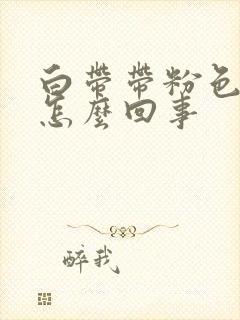 白帶帶粉色
怎麼回事
醉我